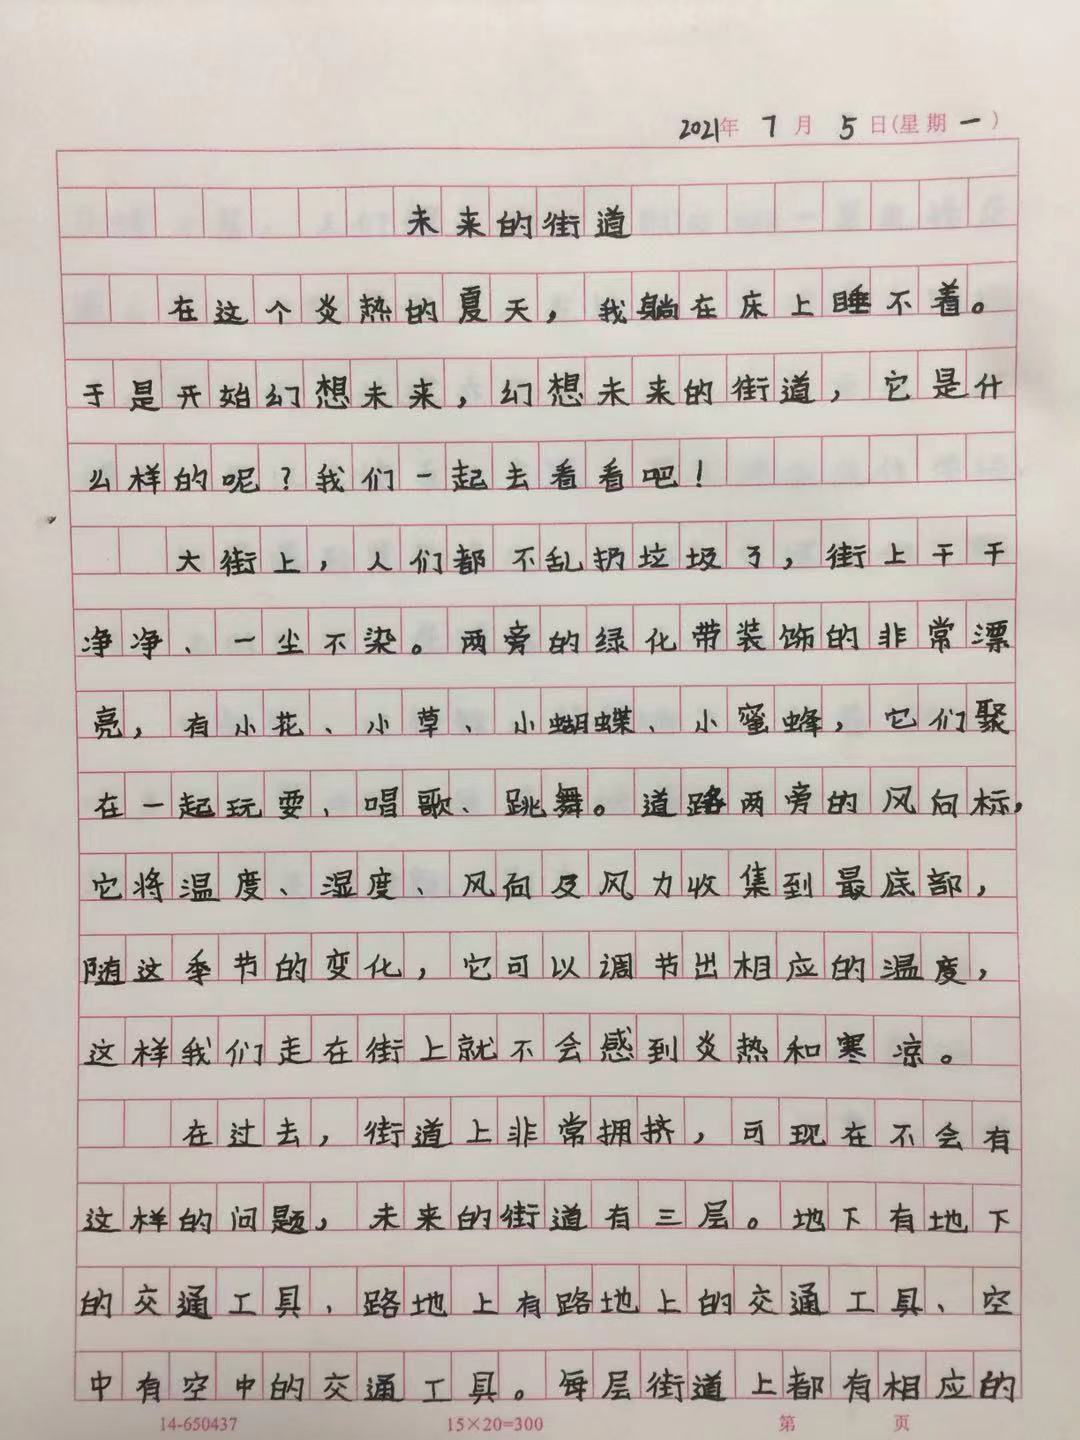 2021年 7月 5日(星期一)
未来的街道
在这个炎热的夏天，我躺在床上睡不着。
于是开始幻想未来，幻想未来的街道，它是什
么样的呢？我们一起去看看吧！
大街上，人们都不乱扔垃圾了，街上干干
净净、一尘不染。两旁的绿化带装饰的非常漂
亮，有小花、小草、小蝴蝶、小蜜蜂，它们聚
在一起玩耍、唱歌、跳舞。道路两旁的风向标，
它将温度、湿度、风向及风力收集到最底部，
随这季节的变化，它可以调节出相应的温度，
这样我们走在街上就不会感到炎热和寒凉。
在过去，街道上非常拥挤，可现在不会有
这样的问题，未来的街道有三层。地下有地下
的交通工具、路地上有路地上的交通工具、空
中有空中的交通工具。每层街道上都有相应的
14-650437 15×20=300 第 页